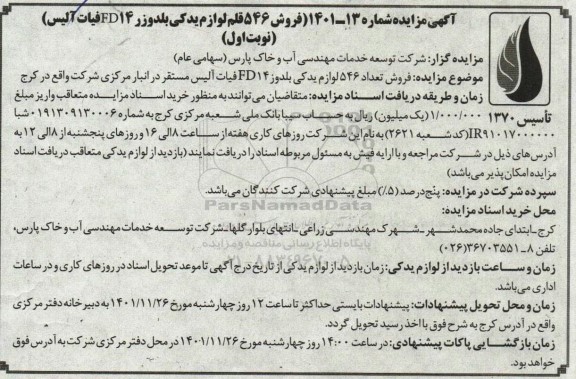 آگهی مزایده شماره ۱۳-۱۴۰۱ (فروش ۵۴۶ قلم لوازم یدکی بلدوزر FD14 فیات آلیس)
(نوبت اول)
مزایده گزار: شرکت توسعه خدمات مهندسی آب و خاک پارس (سهامی عام)
موضوع مزایده: فروش تعداد ۵۴۶ لوازم یدکی بلدوزر FD14 فیات آلیس مستقر در انبار مرکزی شرکت واقع در کرج
زمان و طریقه دریافت اسناد مزایده: متقاضیان می‌توانند به منظور خرید اسناد مزایده متعاقب واریز مبلغ
تأسیس ۱۳۷۰
۱/۰۰۰/۰۰۰ (یک میلیون) ریال به حساب سیبا بانک ملی شعبه مرکزی کرج به شماره ۰۱۹۱۳۰۹۱۳۰۰۰۶ شبا
IR۹۱۰۱۷۰۰۰۰۰۰ (کد شعبه ۲۶۲۱) به نام این شرکت روزهای کاری هفته از ساعت ۸ الی ۱۶ و روزهای پنجشنبه از ۸ الی ۱۲ به
آدرس‌های ذیل در شرکت مراجعه و با ارایه فیش به مسئول مربوطه اسناد را دریافت نمایند (بازدید از لوازم یدکی متعاقب دریافت اسناد
مزایده امکان پذیر می‌باشد)
سپرده شرکت در مزایده: پنج درصد (۵٪) مبلغ پیشنهادی شرکت کنندگان می‌باشد.
محل خرید اسناد مزایده:
کرج-ابتدای جاده محمدشهر-شهرک مهندسی زراعی-انتهای بلوار گلها-شرکت توسعه خدمات مهندسی آب و خاک پارس،
تلفن ۸-۳۶۷۰۳۵۵۱ (۰۲۶)
زمان و ساعت بازدید از لوازم یدکی: زمان بازدید از لوازم یدکی از تاریخ درج آگهی تا موعد تحویل اسناد در روزهای کاری و در ساعات
اداری می‌باشد.
زمان و محل تحویل پیشنهادات: پیشنهادات بایستی حداکثر تا ساعت ۱۲ روز چهارشنبه مورخ ۱۴۰۱/۱۱/۲۶ به دبیرخانه دفتر مرکزی
واقع در آدرس کرج به شرح فوق با اخذ رسید تحویل گردد.
زمان بازگشایی پاکات پیشنهادی: در ساعت ۱۴:۰۰ روز چهارشنبه مورخ ۱۴۰۱/۱۱/۲۶ در محل دفتر مرکزی شرکت به آدرس فوق
خواهد بود.
ParsNamadData
پایگاه اطلاع رسانی مناقصه و مزایده